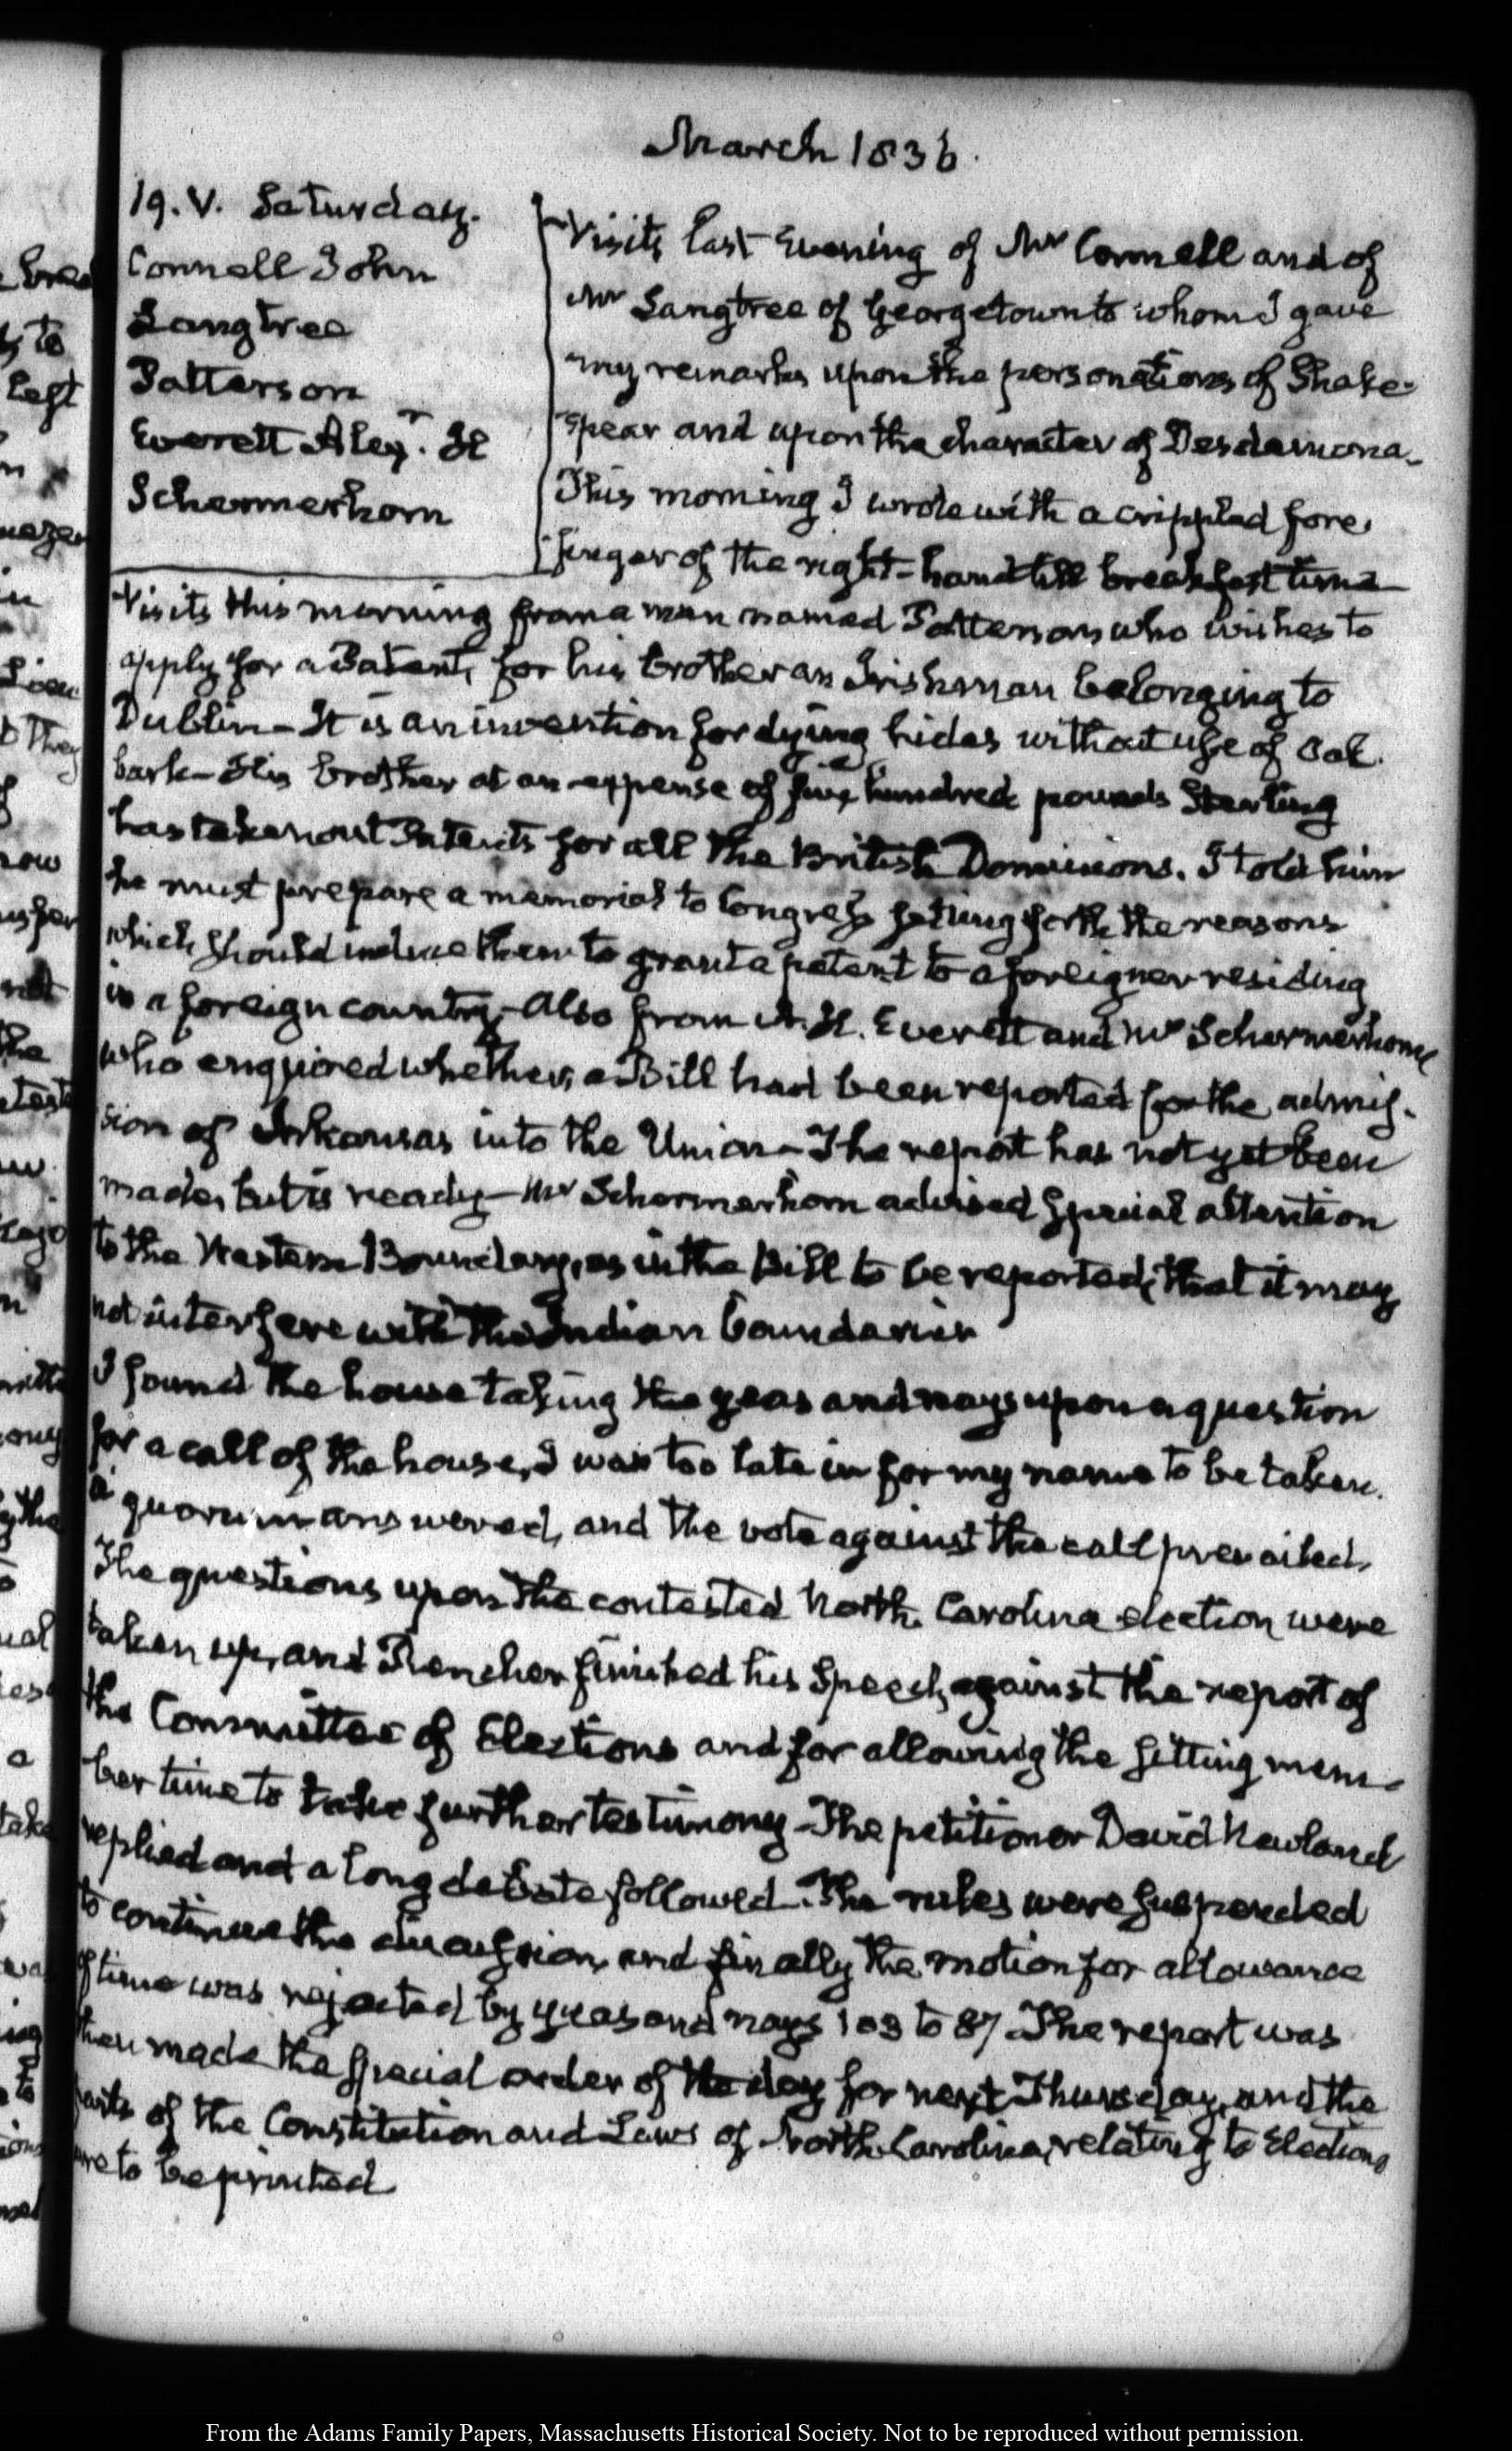 March 1836.
19. V. Saturday.
Connell John
Langtree
Patterson
Everett Alexr. H
Schermerhorn
Visits last Evening of Mr Connell and of
Mr Langtree of Georgetown to whom I gave
my remarks upon the personations of Shake-
spear and upon the character of Desdamona-
This morning I wrote with a crippled fore
finger of the right-hand till breakfast time-
Visits this morning from a man named Patterson who wishes to
apply for a Patent, for his brother an Irishman belonging to
Dublin- It is an invention for dying hides without use of Oak
bark- His brother at an expense of five hundred pounds Sterling
has taken out Patents for all the British Dominions. I told him
he must prepare a memorial to Congress setting forth the reasons
which should induce them to grant a patent to a foreigner residing
in a foreign country- Also from A. H. Everett and Mr Schermerhorn
who enquired whether a Bill had been reported for the admis-
sion of Arkansas into the Union- The report has not yet been
made, but is ready- Mr Schermerhorn advised special attention
to the Western Boundary, as in the Bill to be reported, that it may
not interfere with the Indian boundaries
I found the house taking the yeas and nays upon a question
for a call of the house, I was too late in for my name to be taken.
a quorum answered, and the vote against the call prevailed,
The questions upon the contested North Carolina election were
taken up, and Rencher finished his Speech against the report of
the Committee of Elections and for allowing the sitting mem-
ber time to take further testimony- The petitioner David Newland
replied and a long debate followed. The rules were suspended
to continue the discussion, and finally the motion for allowance
of time was rejected by yeas and nays 103 to 87. The report was
then made the special order of the day for next Thursday, and the
parts of the Constitution and Laws of North Carolina, relating to Elections
are to be printed
From the Adams Family Papers, Massachusetts Historical Society. Not to be reproduced without permission.